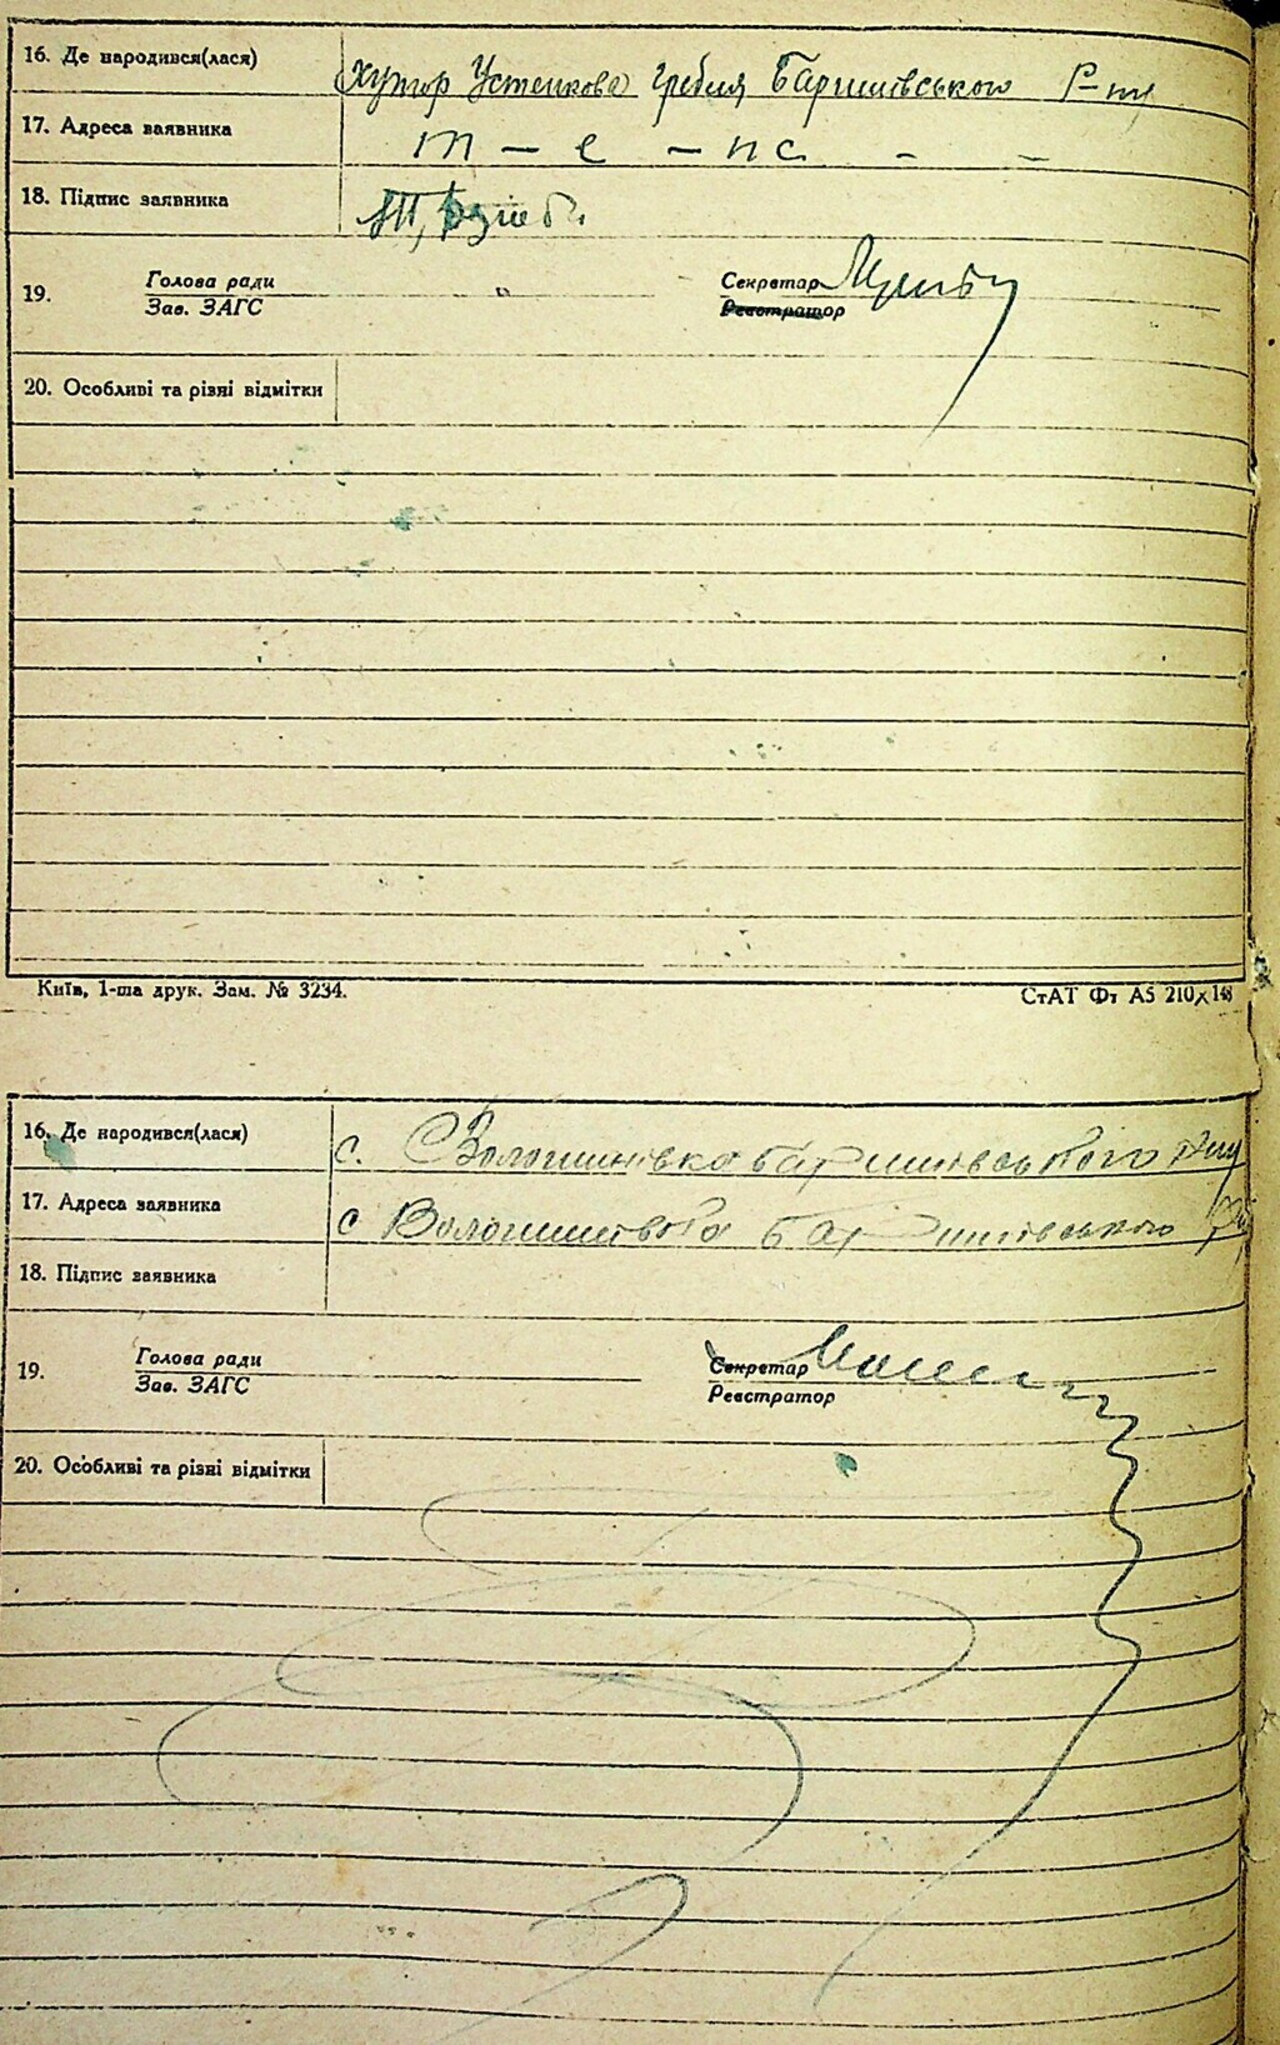 16. Де народився(лася) хутор Устенкова гребля Баришівського Р-ну
17. Адреса заявника т - е - пс - -
18. Підпис заявника
19. Голова ради Секретар
Зав. ЗАГС Реєстратор
20. Особливі та різні відмітки
Київ, 1-ша друк. Зам. № 3234. СтАТ Фт А5 210х148
16. Де народився(лася) с. Волошинівка Баришівського р-ну
17. Адреса заявника с Волошинівка Баришівського
18. Підпис заявника
19. Голова ради Секретар
Зав. ЗАГС Реєстратор
20. Особливі та різні відмітки